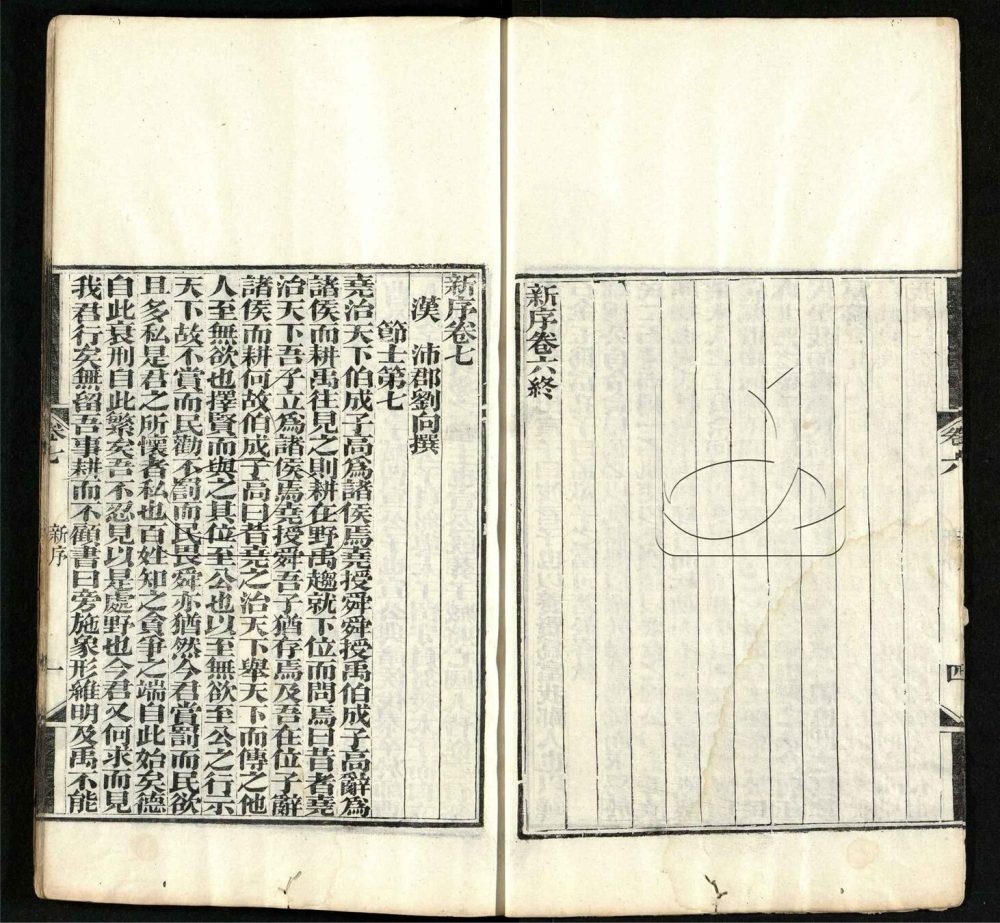 新序卷六終
卷六
四
新序卷七
漢 沛郡劉向撰
節士第七
堯治天下伯成子高爲諸侯焉堯授舜舜授禹伯成子高辭爲
諸侯而耕禹往見之則耕在野禹趨就下位而問焉曰昔者堯
治天下吾子立爲諸侯焉堯授舜吾子猶存焉及吾在位子辭
諸侯而耕何故伯成子高曰昔堯之治天下舉天下而傳之他
人至無欲也擇賢而與之其位至公也以至無欲至公之行示
天下故不賞而民勸不罰而民畏舜亦猶然今君賞罰而民欲
且多私是君之所懷者私也百姓知之貪爭之端自此始矣德
自此衰刑自此繁矣吾不忍見以是處野也今君又何求而見
我君行矣無留吾事耕而不顧書曰旁施象形維明及禹不能
卷七
新序
一